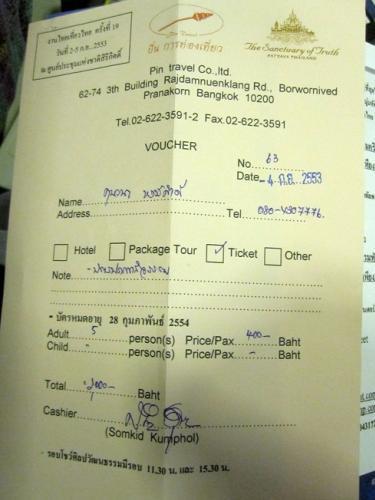 งานไทยเที่ยวไทย ครั้งที่ 19
วันที่ 2-5 ก.ย.2553
ณ ศูนย์ประชุมแห่งชาติสิริกิติ์
Pin Travel
ปิ่น การท่องเที่ยว
The Sanctuary of Truth
PATTAYA THAILAND
Pin travel Co.,ltd.
62-74 3th Building Rajdamnuenklang Rd., Borwornived
Pranakorn Bangkok 10200
Tel.02-622-3591-2 Fax.02-622-3591
VOUCHER
No. 63
Date 4 ก.ย. 2553
Name
Address Tel
Hotel Package Tour ✓ Ticket Other
Note
- บัตรหมดอายุ 28 กุมภาพันธ์ 2554
Adult 5 person(s) Price/Pax 400- Baht
Child - person(s) Price/Pax - Baht
Total 2,000- Baht
Cashier
(Somkid Kumphol)
- รอบโชว์ศิลปวัฒนธรรมมีรอบ 11.30 น. และ 15.30 น.